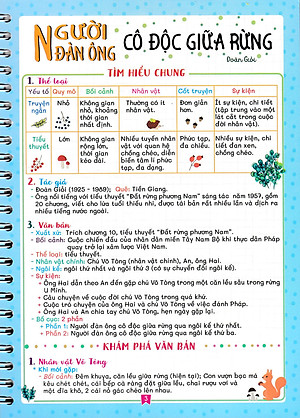 NGƯỜI ĐÀN ÔNG CÔ ĐỘC GIỮA RỪNG
Đoàn Giỏi
TÌM HIỂU CHUNG
1. Thể loại
Yếu tố Quy mô Bối cảnh Nhân vật Cốt truyện Sự kiện, chi tiết
Truyện ngắn Nhỏ Không gian nhỏ, khoảng thời gian nhất định. Thường có ít nhân vật. Đơn giản hơn. Ít sự kiện, chi tiết (tập trung vào một lát cắt trong cuộc đời nhân vật).
Tiểu thuyết Lớn Không gian rộng lớn, thời gian kéo dài. Nhiều tuyến nhân vật với quan hệ chồng chéo, diễn biến tâm lí phức tạp, đa dạng. Phức tạp, đa chiều. Nhiều sự kiện, chi tiết đan xen, chồng chéo.
2. Tác giả
- Đoàn Giỏi (1925 - 1989); Quê: Tiền Giang.
- Ông nổi tiếng với tiểu thuyết "Đất rừng phương Nam" sáng tác năm 1957, gồm
20 chương, viết cho lứa tuổi thiếu nhi, được tái bản rất nhiều lần và dịch ra
nhiều tiếng nước ngoài.
3. Văn bản
- Xuất xứ: Trích chương 10, tiểu thuyết "Đất rừng phương Nam".
- Bối cảnh: Cuộc chiến đấu của nhân dân miền Tây Nam Bộ khi thực dân Pháp
quay trở lại xâm lược Việt Nam.
- Thể loại: tiểu thuyết.
- Nhân vật chính: Chú Võ Tòng (nhân vật chính), An, ông Hai.
- Ngôi kể: ngôi thứ nhất và ngôi thứ 3 (có sự chuyển đổi ngôi kể).
- Sự kiện:
+ Ông Hai dẫn theo An đến gặp chú Võ Tòng trong một căn lều sâu trong rừng
U Minh.
+ Câu chuyện về cuộc đời chú Võ Tòng trong quá khứ.
+ Cuộc trò chuyện của ông Hai và chú Võ Tòng về việc đánh Pháp.
+ Ông Hai và An chia tay chú Võ Tòng, hẹn ngày gặp lại.
- Bố cục: 2 phần
+ Phần 1: Người đàn ông cô độc giữa rừng qua ngôi kể thứ nhất.
+ Phần 2: Người đàn ông cô độc giữa rừng qua ngôi kể thứ ba.
KHÁM PHÁ VĂN BẢN
1. Nhân vật Võ Tòng
- Khi mới gặp:
- Bối cảnh: Đêm khuya, căn lều giữa rừng (hiện tại); Con vượn bạc má
kêu chét chét, cái bếp cà ràng đặt giữa lều, chai rượu vơi và
một đĩa khô, 2 cái nỏ gác chéo lên nhau.
2